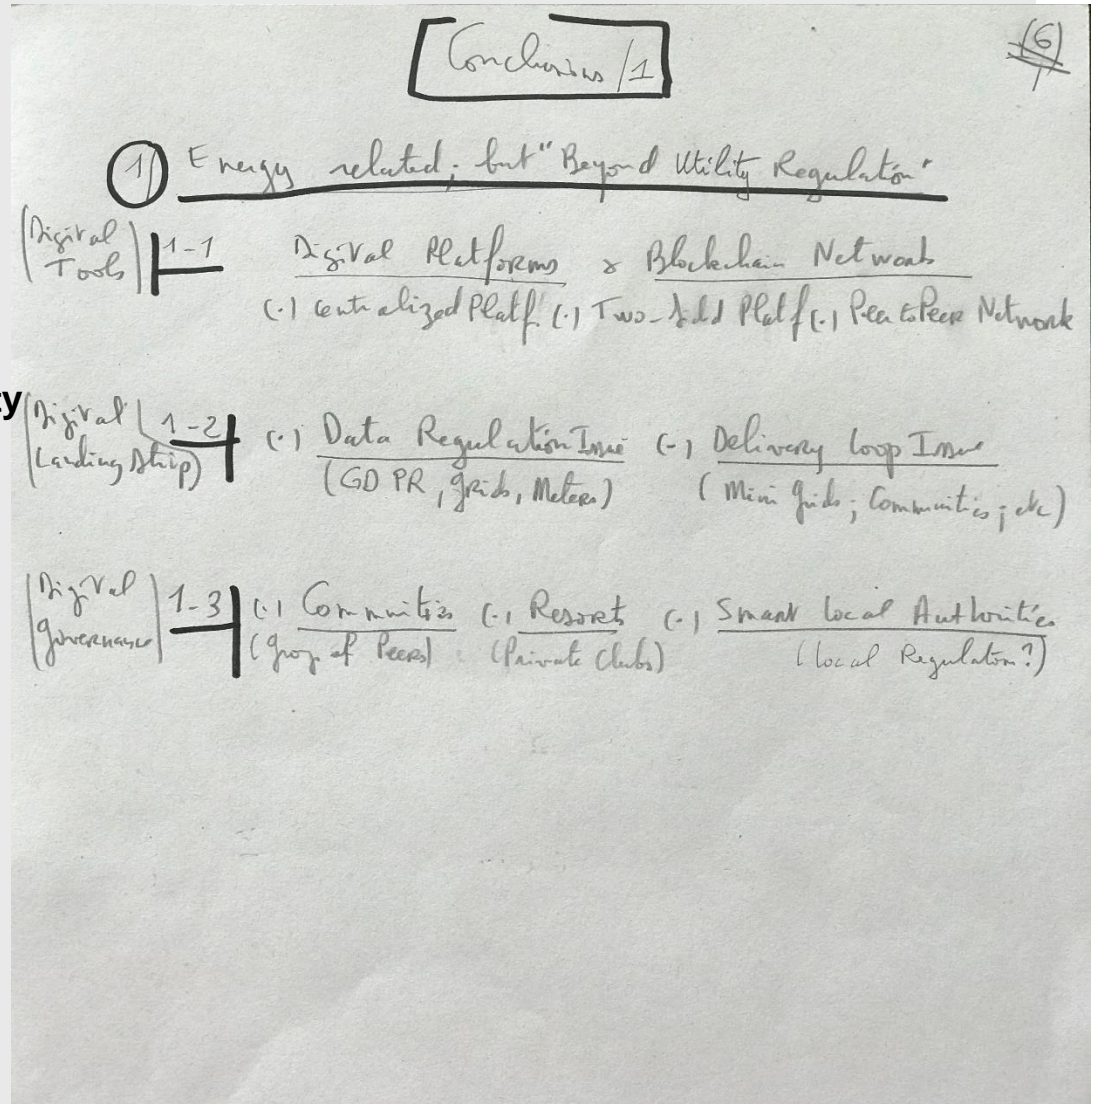 Conclusions /1
(6)
1) Energy related; but "Beyond Utility Regulation"
(Digital Tools) 1-1 Digital Platforms & Blockchain Networks
(.) Centralized Platf. (.) Two-Sided Platf (.) Peer to Peer Network
ty
(Digital Landing Strip) 1-2 (.) Data Regulation Issue (-) Delivery Loop Issue
(GDPR, grids, Meters) (Mini grids; Communities; etc)
(Digital governance) 1-3 (.) Communities (-) Resorts (-) Smart local Authorities
(group of Peers) (Private Clubs) (local Regulation?)